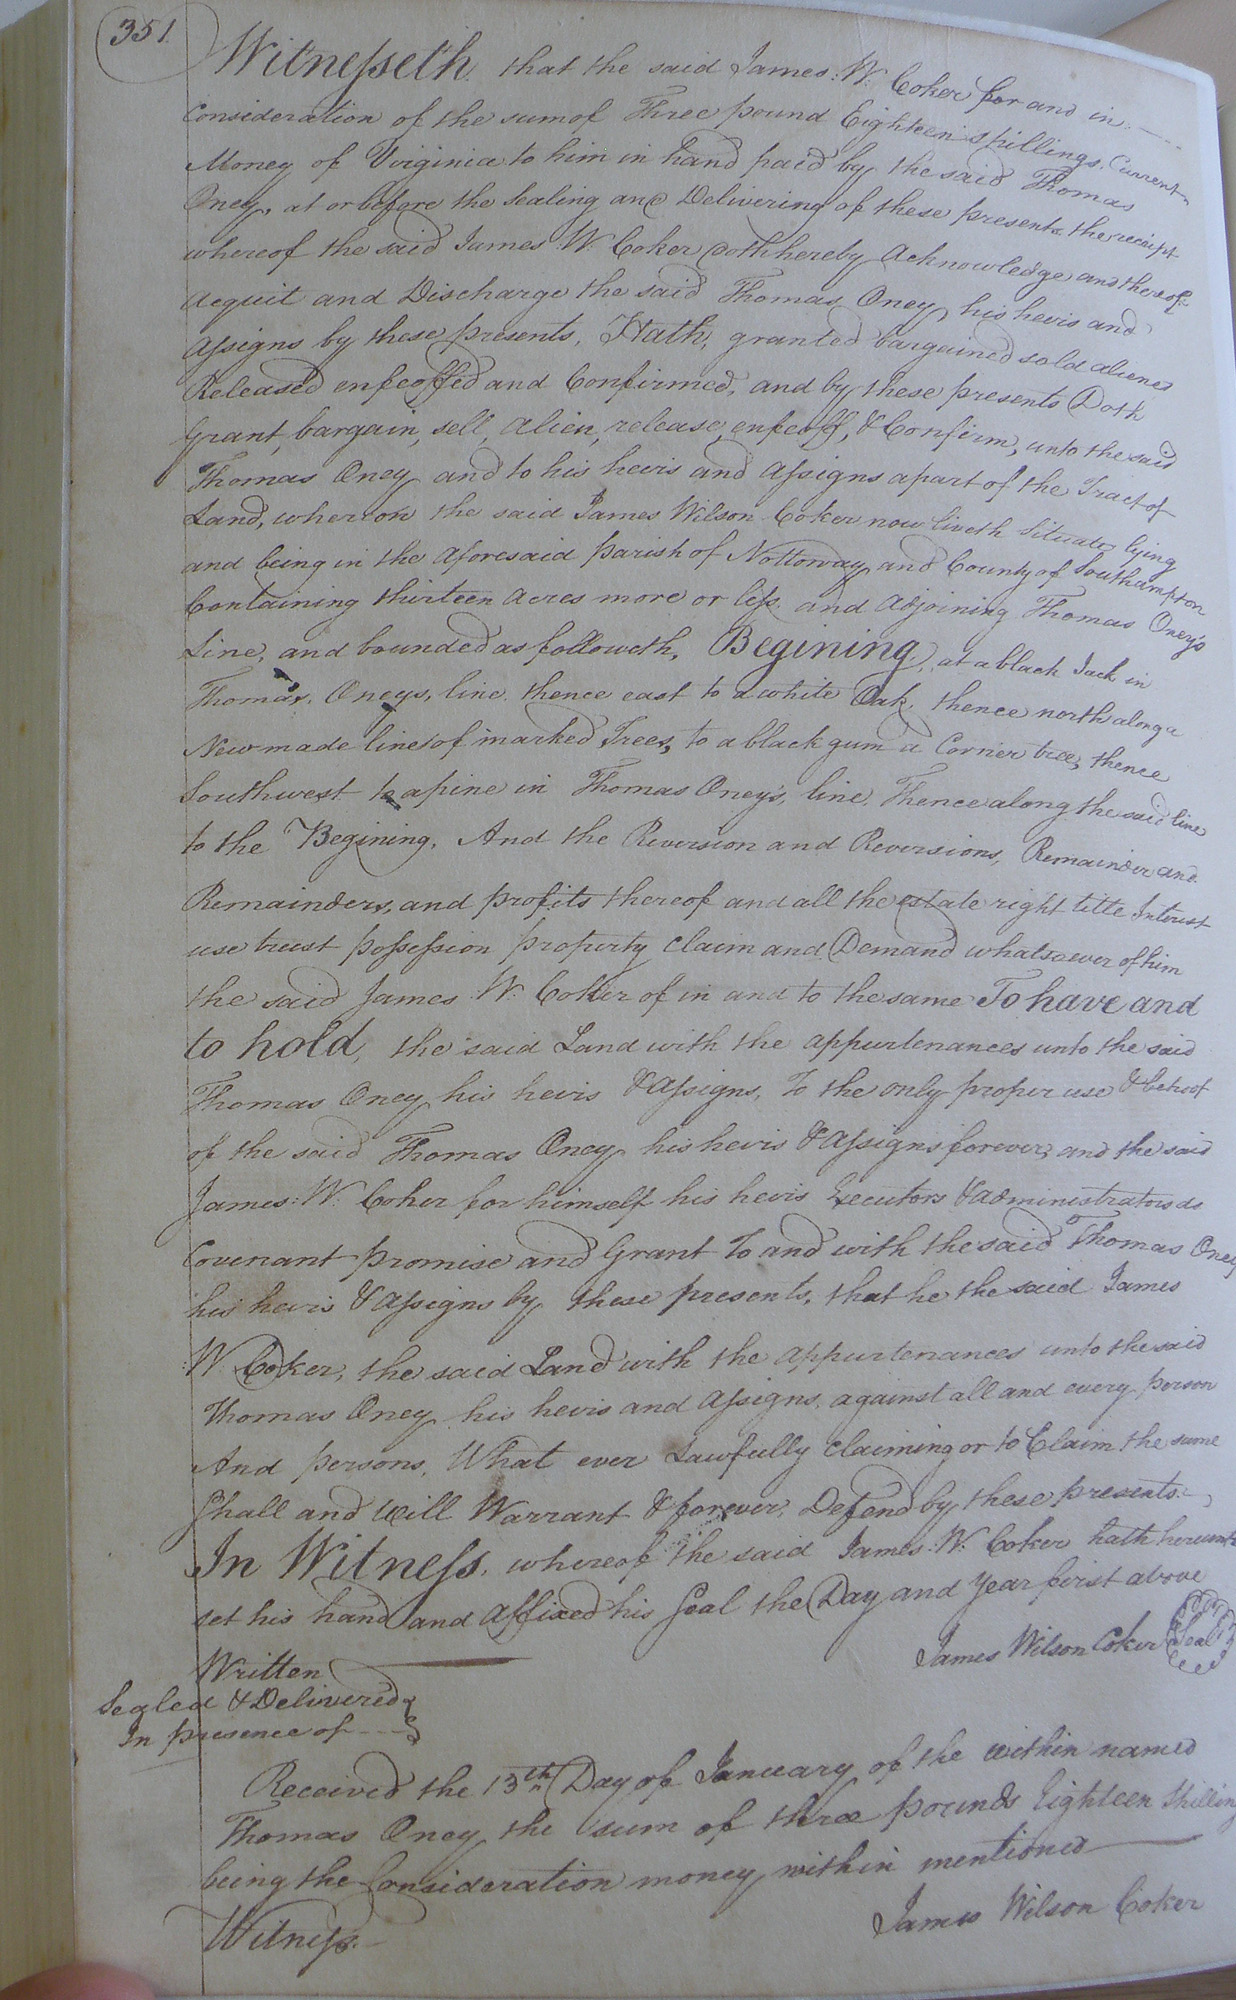 351
Witnesseth that the said James: W: Coker for and in
Consideration of the sum of Three pound Eighteen shillings, Current
Money of Virginia to him in hand paid by the said Thomas
Oney, at or before the Sealing and Delivering of these presents the receipt
whereof the said James W. Coker doth hereby Acknowledge and thereof
acquit and Discharge the said Thomas Oney his heirs and
Assigns by these presents, Hath, granted bargained sold aliened
Released enfeoffed and Confirmed, and by these presents Doth
Grant, bargain, sell, alien, release, enfeoff, & Confirm, unto the said
Thomas Oney and to his heirs and Assigns apart of the Tract of
Land, wheron the said James Wilson Coker now liveth Situate lying
and being in the aforesaid parish of Nottoway and County of Southampton
Containing thirteen acres more or less and adjoining Thomas Oney's
Line, and bounded as followeth, Begining, at a black Jack in
Thomas, Oneys, line thence east to a white Oak, thence north along a
New made line of marked Trees, to a black gum a Corner tree, thence
Southwest to a pine in Thomas Oney's, line, Thence along the said line
to the Begining. And the Reversion and Reversions, Remainder and
Remainders, and profits thereof and all the estate right title Interest
use trust possession property claim and Demand whatsoever of him
the said James W. Coker of in and to the same To have and
to hold, the said Land with the appurtenances unto the said
Thomas Oney his heirs & Assigns, To the only proper use & behoof
of the said Thomas Oney his heirs & Assigns forever, and the said
James: W. Coker for himself his heirs Executors & administrators do
Covenant promise and Grant To and with the said Thomas Oney
his heirs & Assigns by these presents, that he the said James
W. Coker, the said Land with the appurtenances unto the said
Thomas Oney his heirs and Assigns, against all and every person
And persons, What ever Lawfully claiming or to Claim the same
Shall and Will Warrant & forever, Defend by these presents.
In Witness, whereof the said James: W: Coker hath hereunto
set his hand and affixed his Seal the Day and year first above
Written
James Wilson Coker Seal
Sealed & Delivered
In presence of
Received the 13th Day of January of the within named
Thomas Oney the sum of three pounds Eighteen Shilling
being the Consideration money within mentioned
James Wilson Coker
Witness.